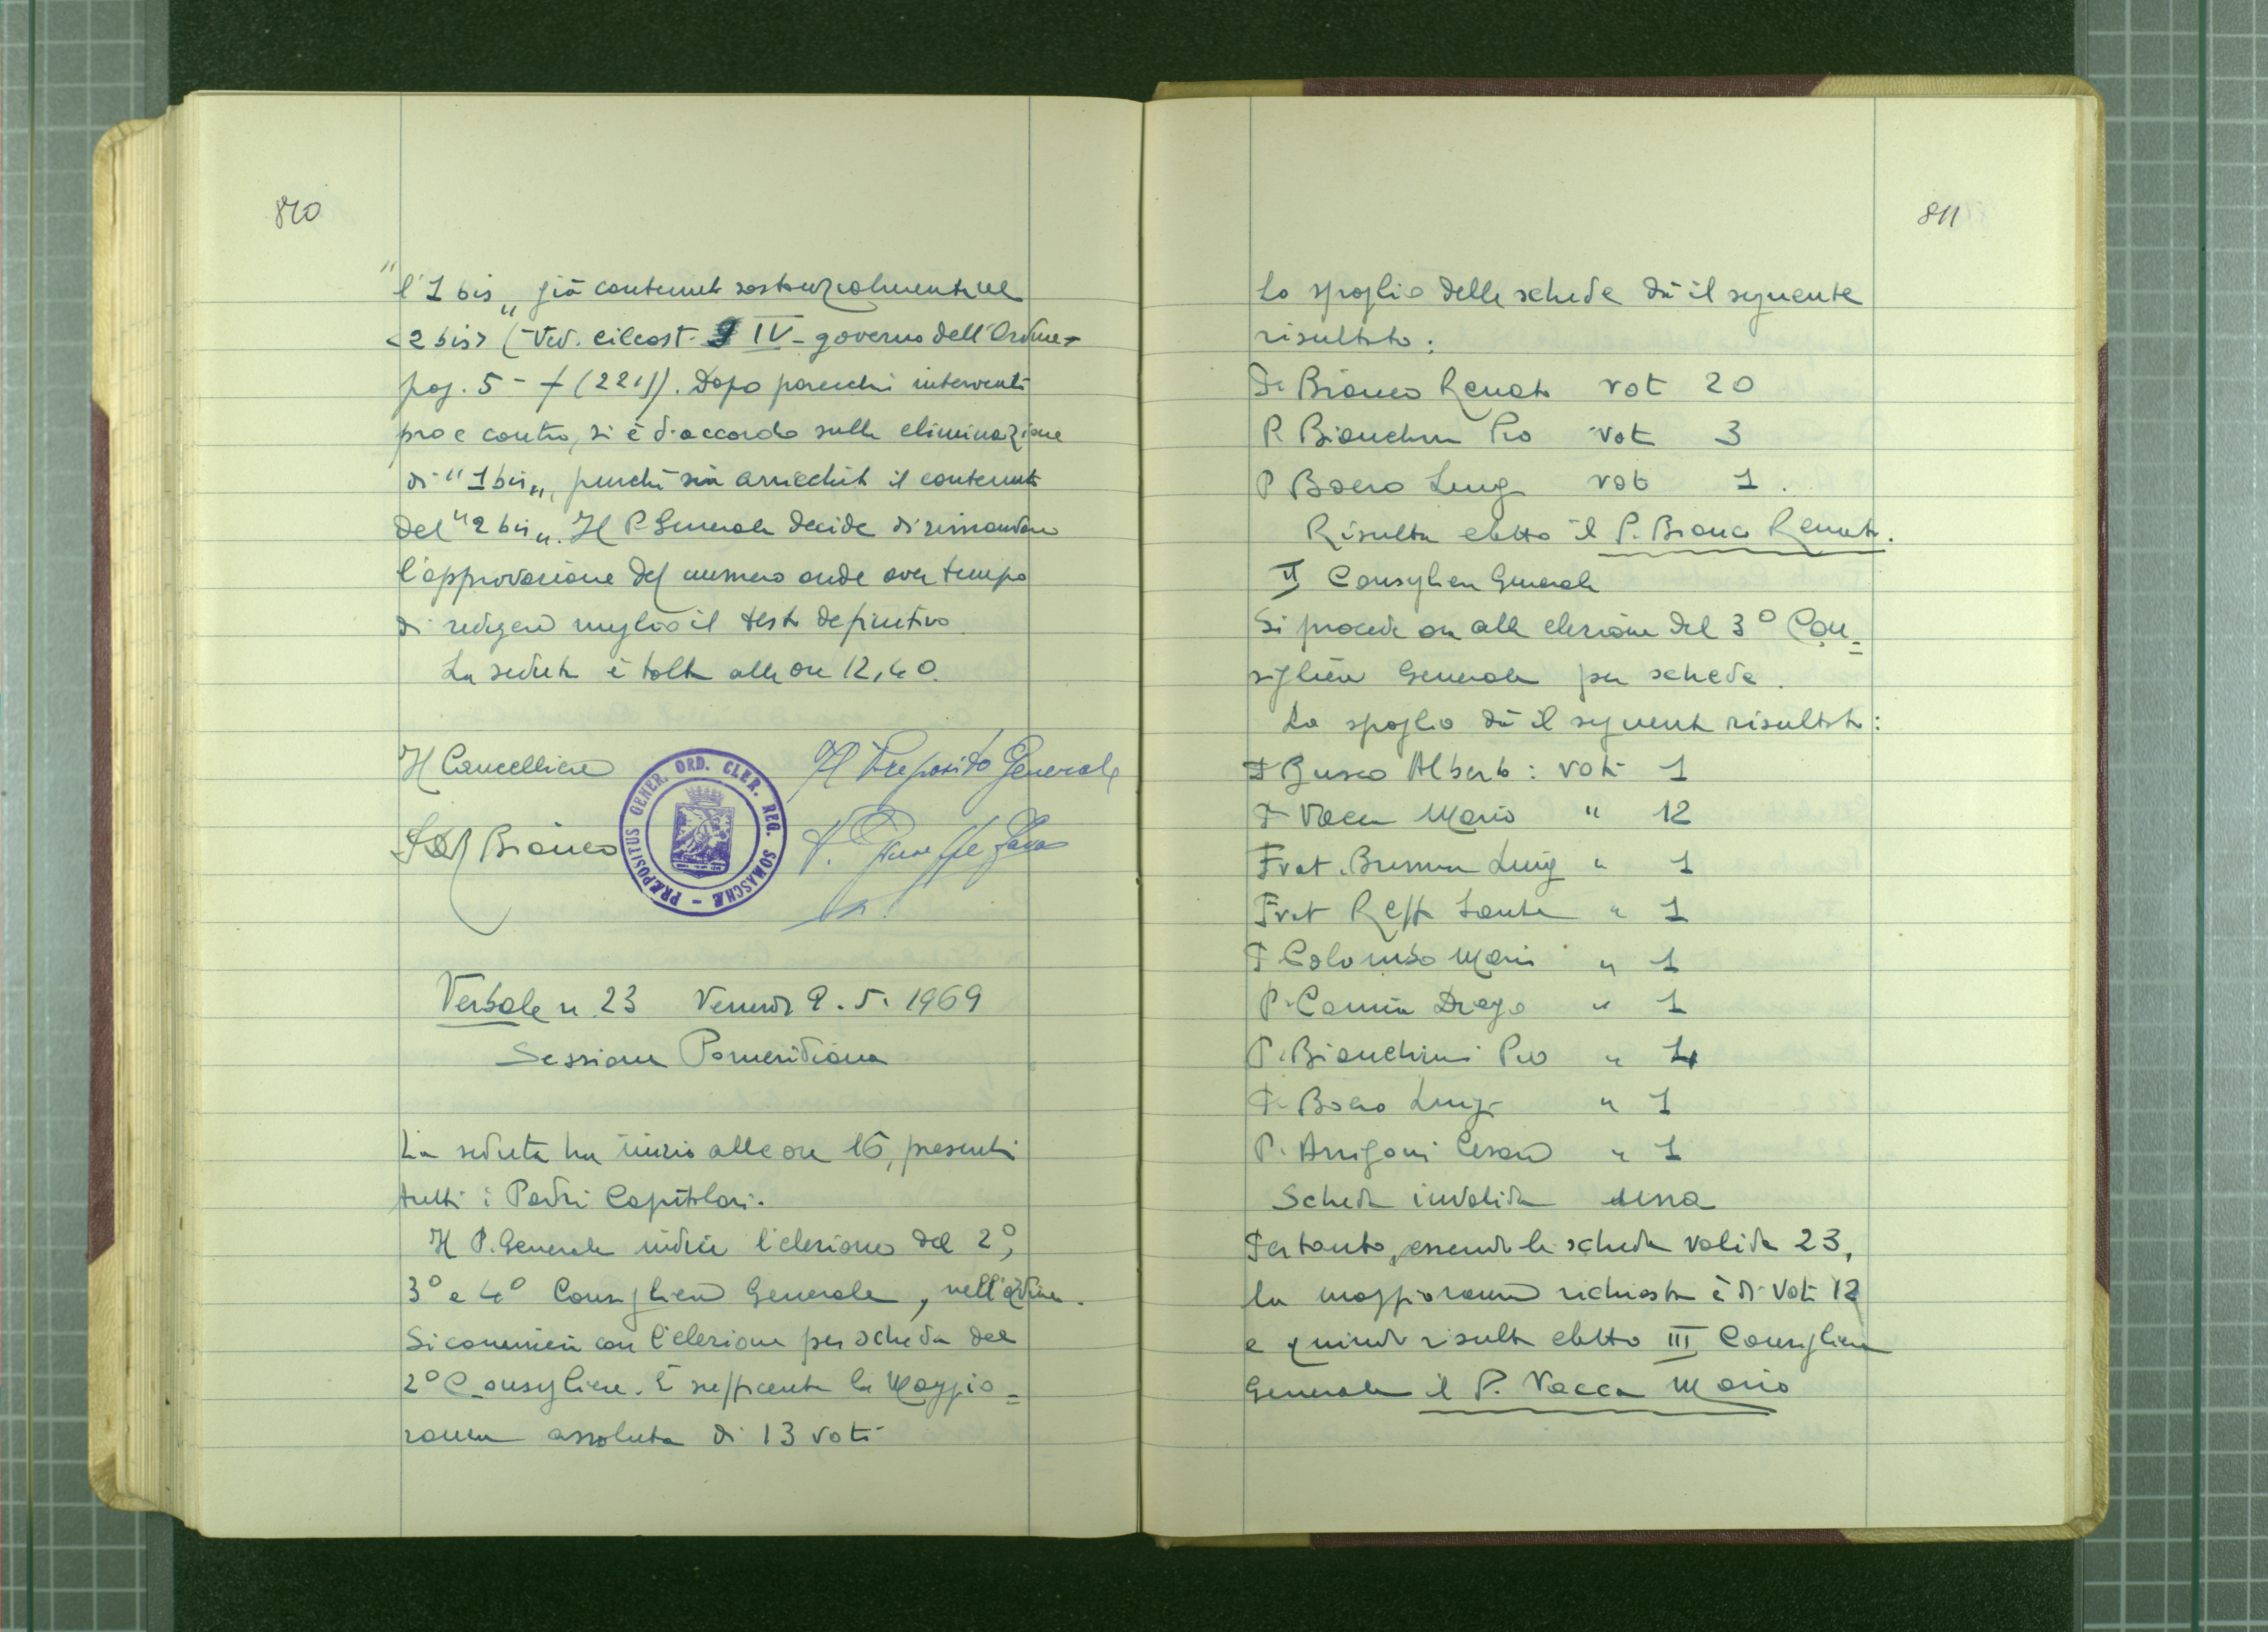 810
"l'1 bis" già contenuto sostanzialmente nel
<2 bis> (Ved. cilcost. IV - governo dell'Ordine -
pag. 5 - f (221)). Dopo parecchi interventi
pro e contro, si è d'accordo sulla eliminazione
di "1 bis", purché sia arricchito il contenuto
del "2 bis". Il P. Generale decide di rimandare
l'approvazione del numero onde aver tempo
di redigere meglio il testo definitivo.
La seduta è tolta alle ore 12,40.
Il Cancelliere Il Preposito Generale
Bianco P. Giuseppe
PRÆPOSITUS GENER. ORD. CLER. REG. SOMASCHÆ -
Verbale n. 23 Venerdì 9. 5. 1969
Sessione Pomeridiana
La seduta ha inizio alle ore 16, presenti
tutti i Padri Capitolari.
Il P. Generale indice l'elezione del 2°,
3° e 4° Consigliere Generale, nell'ordine.
Si comincia con l'elezione per scheda del
2° Consigliere. È sufficiente la Maggio=
ranza assoluta di 13 voti
811
Lo spoglio delle schede dà il seguente
risultato:
P. Bianco Renato voti 20
P. Bianchini Pio voti 3
P. Boero Luigi voto 1.
Risulta eletto il P. Bianco Renato.
II Consigliere Generale
Si procede ora alla elezione del 3° Con=
sigliere Generale per scheda.
Lo spoglio dà il seguente risultato:
P. Busco Alberto: voti 1
P. Vacca Mario " 12
Frat. Luigi " 1
Frat. Sante " 1
P. Colombo Mario " 1
P. Camia Diego " 1
P. Bianchini Pio " 4
P. Boero Luigi " 1
P. Arrigoni Cesare " 1
Scheda invalida una
Pertanto, essendo le schede valide 23,
la maggioranza richiesta è di voti 12
e quindi risulta eletto III Consigliere
Generale il P. Vacca Mario